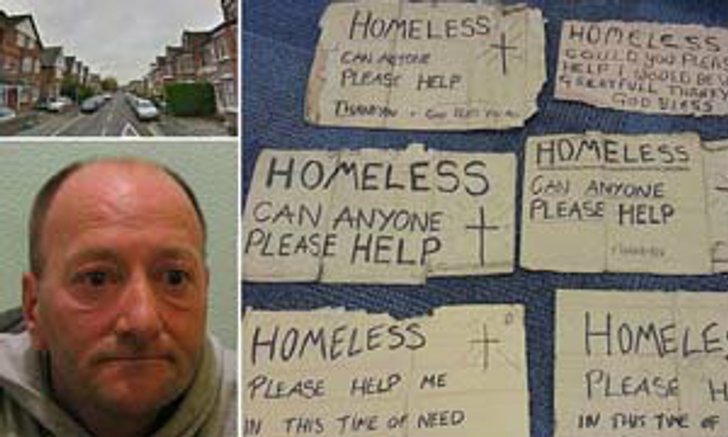 HOMELESS
CAN ANYONE
PLEASE HELP
THANKYOU + GOD BLESS YOU ALL
HOMELESS
COULD YOU PLEASE
HELP I WOULD BE
GREATFULL THANKYOU
GOD BLESS
HOMELESS
CAN ANYONE
PLEASE HELP
HOMELESS
CAN ANYONE
PLEASE HELP
HOMELESS
PLEASE HELP ME
IN THIS TIME OF NEED
HOMELE
PLEASE H
IN THIS TIME OF